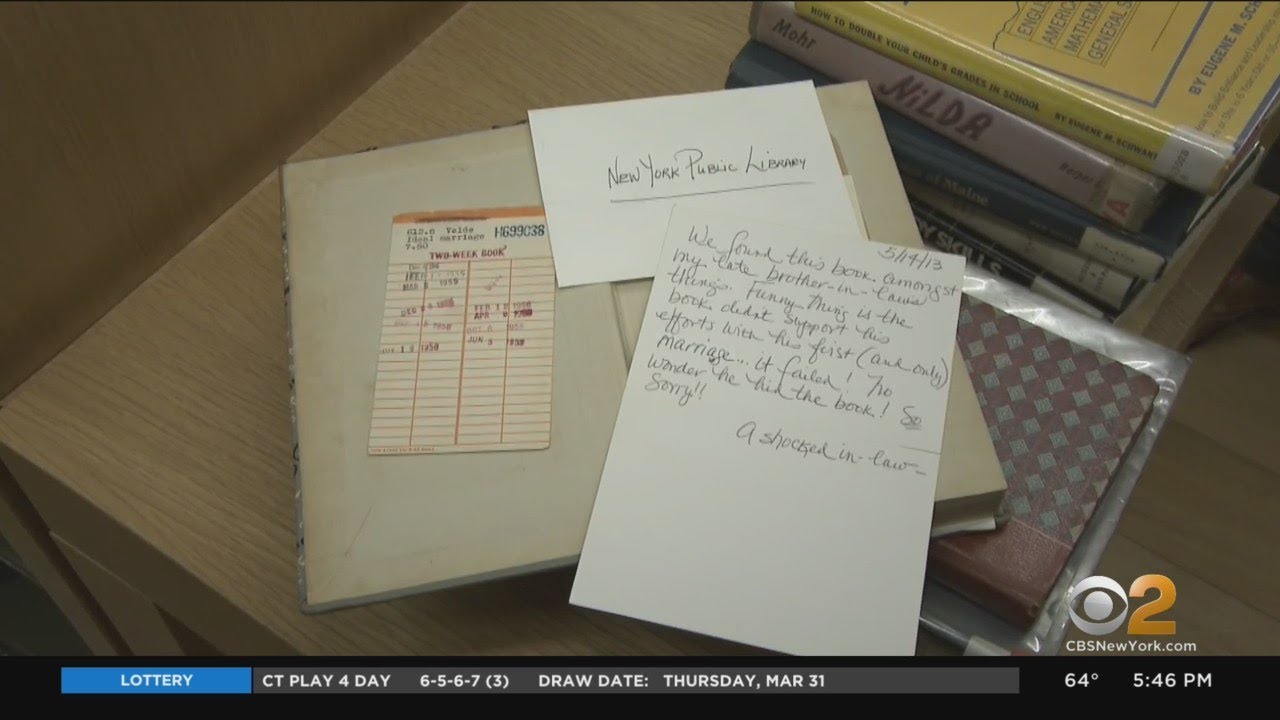 HOW TO DOUBLE YOUR CHILD'S GRADES IN SCHOOL
BY EUGENE M. SCHWART
BY EUGENE M. SCH
ENGLI
AMERICA
MATHEMA
GENERAL S
Mohr
NiLDA
Harper
of Maine
SKILLS
NEW YORK PUBLIC LIBRARY
612.6 Velde
Ideal marriage
7.50
H699038
TWO-WEEK BOOK
5/14/13
We found this book amongst
my late brother-in-laws
things. Funny thing is the
book didnt support his
efforts with his first (and only)
marriage... it failed! No
wonder he hid the book! So
Sorry!!
A shocked in-law
2
CBSNewYork.com
LOTTERY CT PLAY 4 DAY 6-5-6-7 (3) DRAW DATE: THURSDAY, MAR 31 64° 5:46 PM